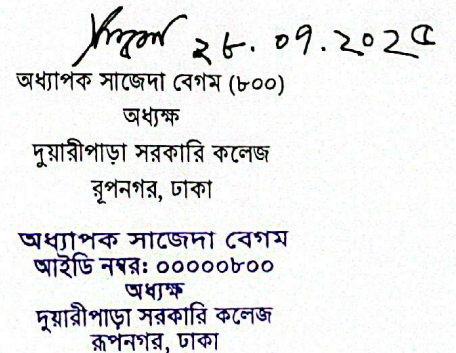 ২৮.০৭.২০২৫
অধ্যাপক সাজেদা বেগম (৮০০)
অধ্যক্ষ
দুয়ারীপাড়া সরকারি কলেজ
রূপনগর, ঢাকা
অধ্যাপক সাজেদা বেগম
আইডি নম্বর: ০০০০০৮০০
অধ্যক্ষ
দুয়ারীপাড়া সরকারি কলেজ
রূপনগর, ঢাকা